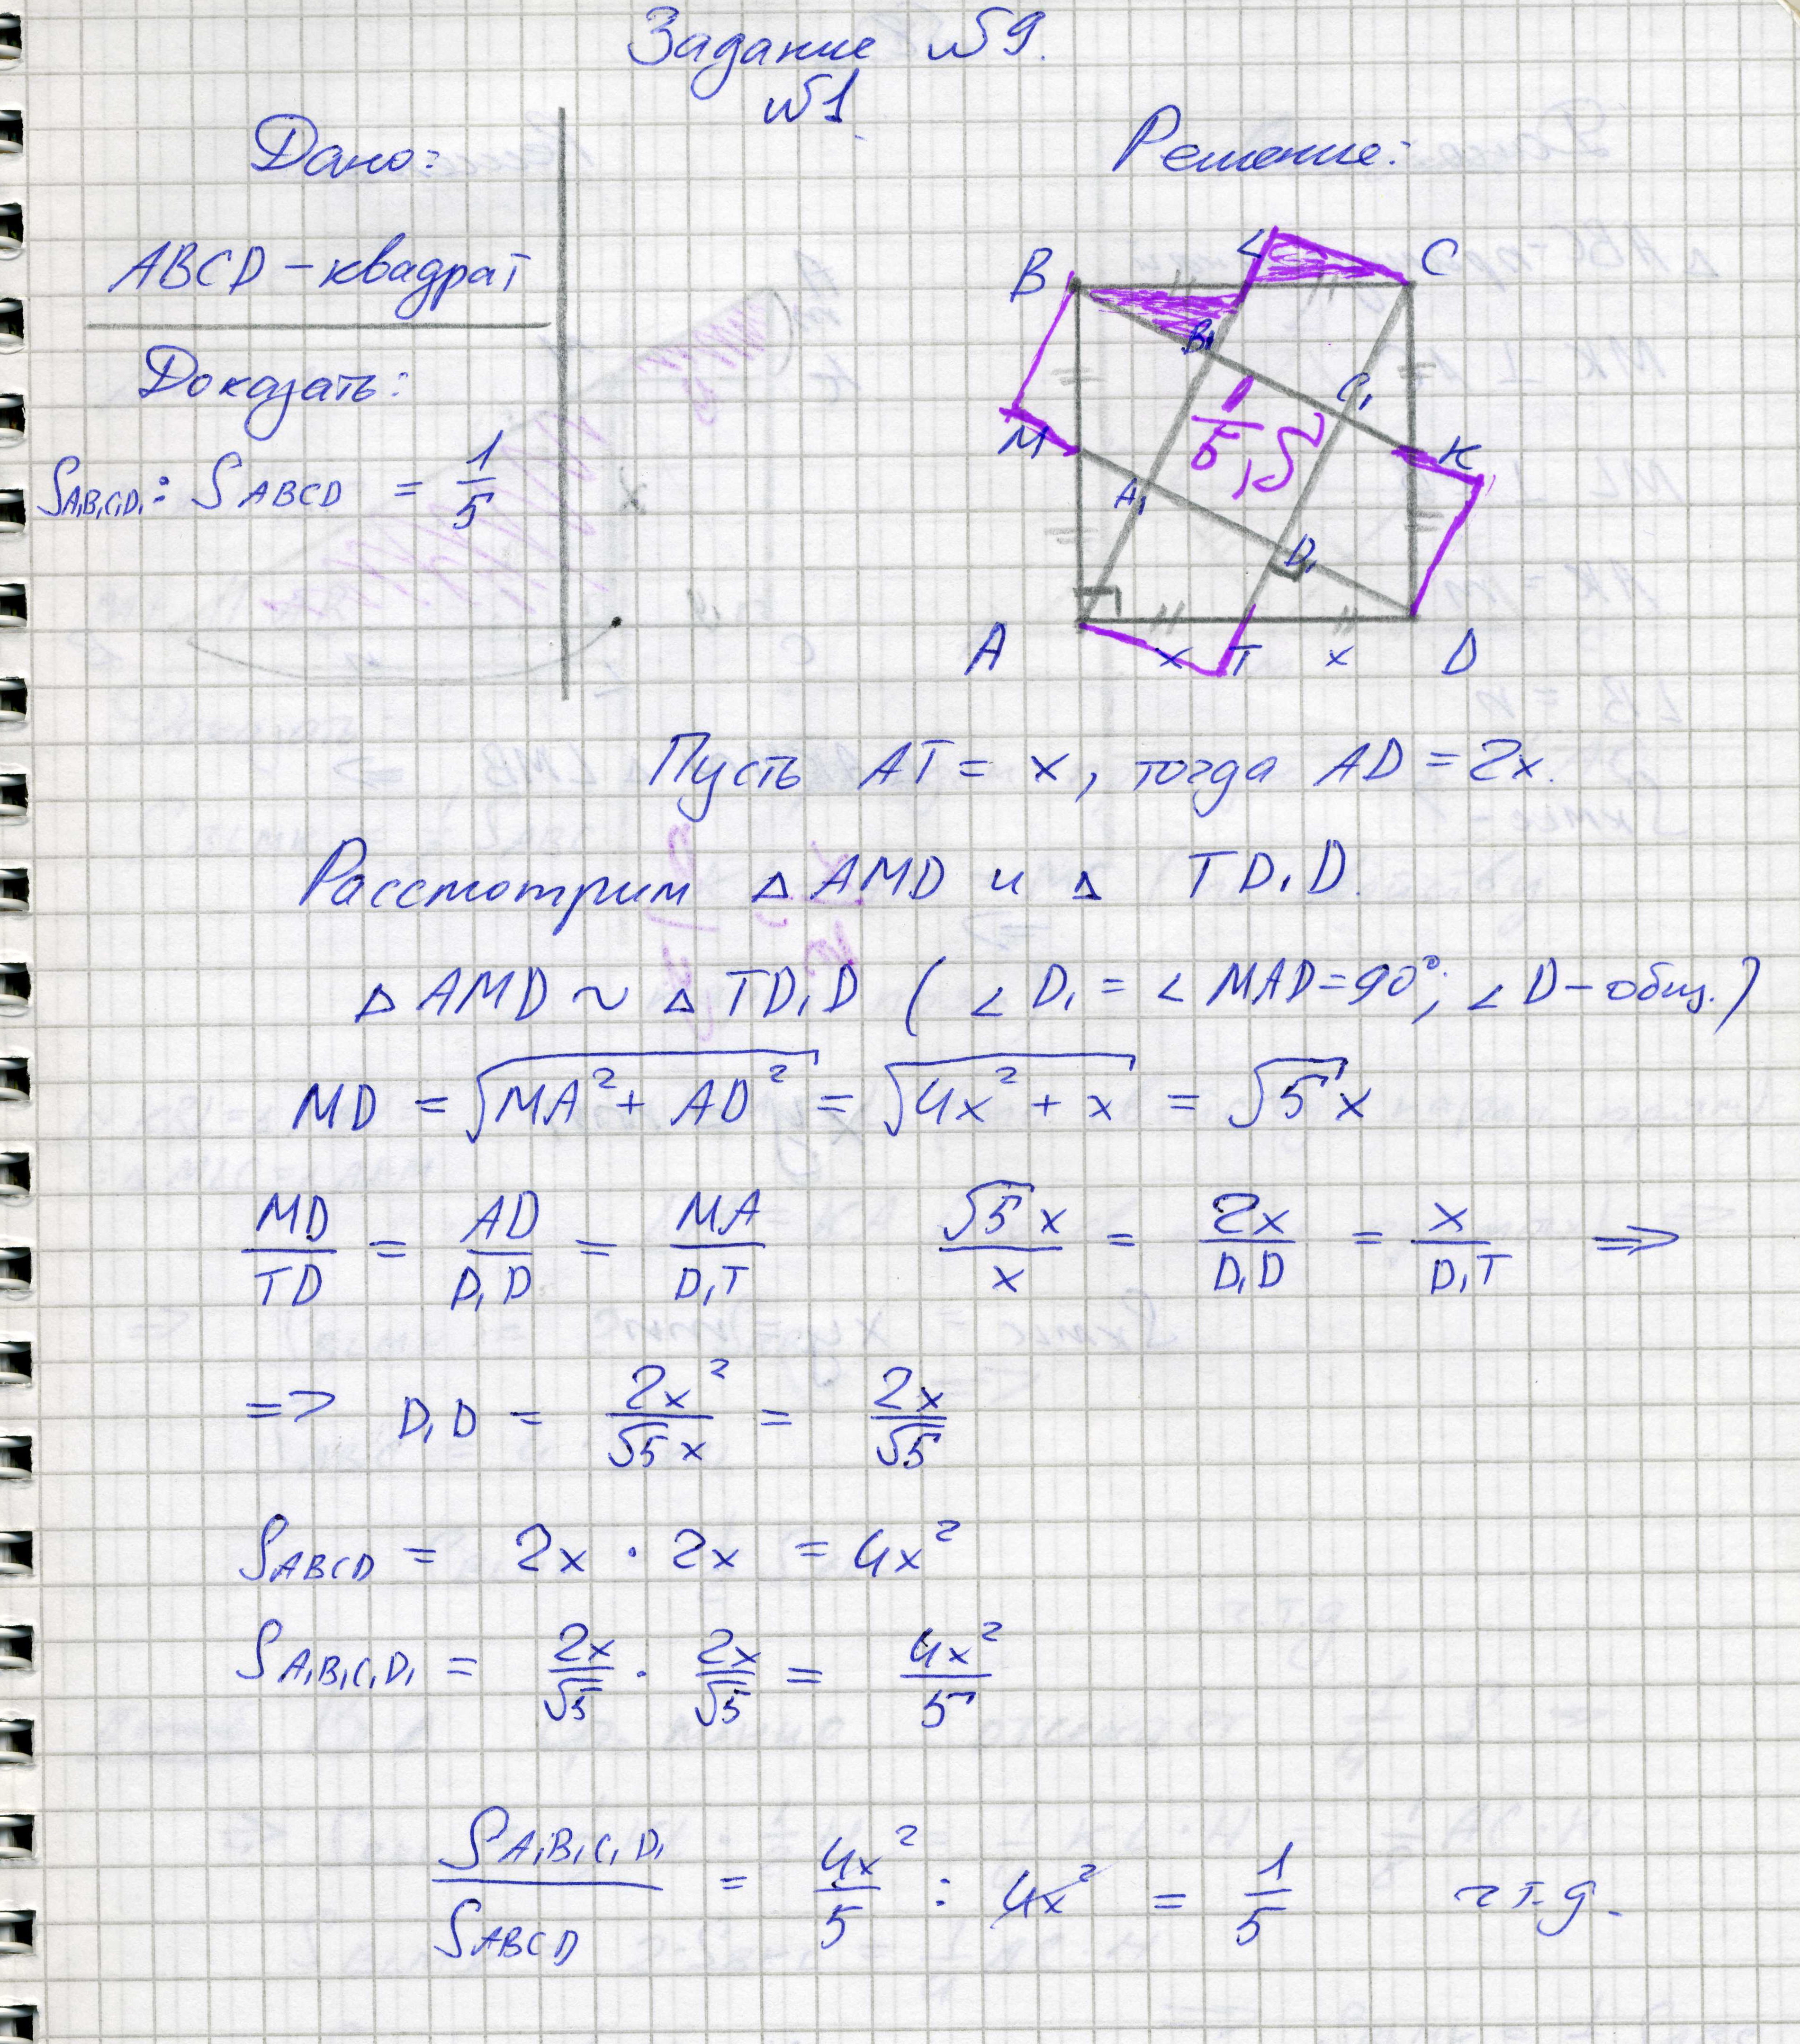 Задание №9.
№1.
Дано:
ABCD – квадрат
Доказать:
S A₁B₁C₁D₁ : S ABCD = 1/5
Решение:
B L C
B₁
C₁
M K
1/5 S
A₁
D₁
A x T x D
Пусть AT = x, тогда AD = 2x.
Рассмотрим △ AMD и △ TD₁D.
△ AMD ~ △ TD₁D (∠ D₁ = ∠ MAD = 90°; ∠ D – общ.)
MD = √(MA² + AD²) = √(4x² + x) = √5 x
MD/TD = AD/D₁D = MA/D₁T √5 x/x = 2x/D₁D = x/D₁T =>
=> D₁D = 2x²/√5 x = 2x/√5
S ABCD = 2x · 2x = 4x²
S A₁B₁C₁D₁ = 2x/√5 · 2x/√5 = 4x²/5
S A₁B₁C₁D₁/S ABCD = 4x²/5 : 4x² = 1/5 ч.т.д.